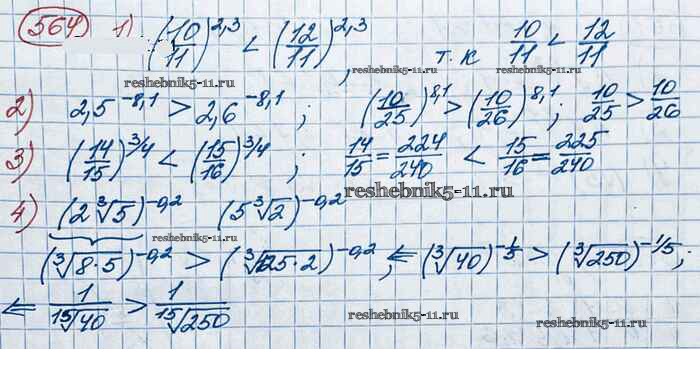 564) 1) (10/11)^2,3 < (12/11)^2,3, т.к 10/11 < 12/11
reshebnik5-11.ru. reshebnik5-11.ru
2) 2,5^-8,1 > 2,6^-8,1; (10/25)^8,1 > (10/26)^8,1; 10/25 > 10/26
3) (14/15)^3/4 < (15/16)^3/4; 14/15 = 224/240 < 15/16 = 225/240
reshebnik5-11.ru.
4) (2∛5)^-0,2 (5∛2)^-0,2
reshebnik5-11.ru.
(∛8·5)^-0,2 > (∛125·2)^-0,2, ⇐ (∛40)^-1/5 > (∛250)^-1/5;
⇐ 1/¹⁵√40 > 1/¹⁵√250
reshebnik5-11.ru reshebnik5-11.ru.